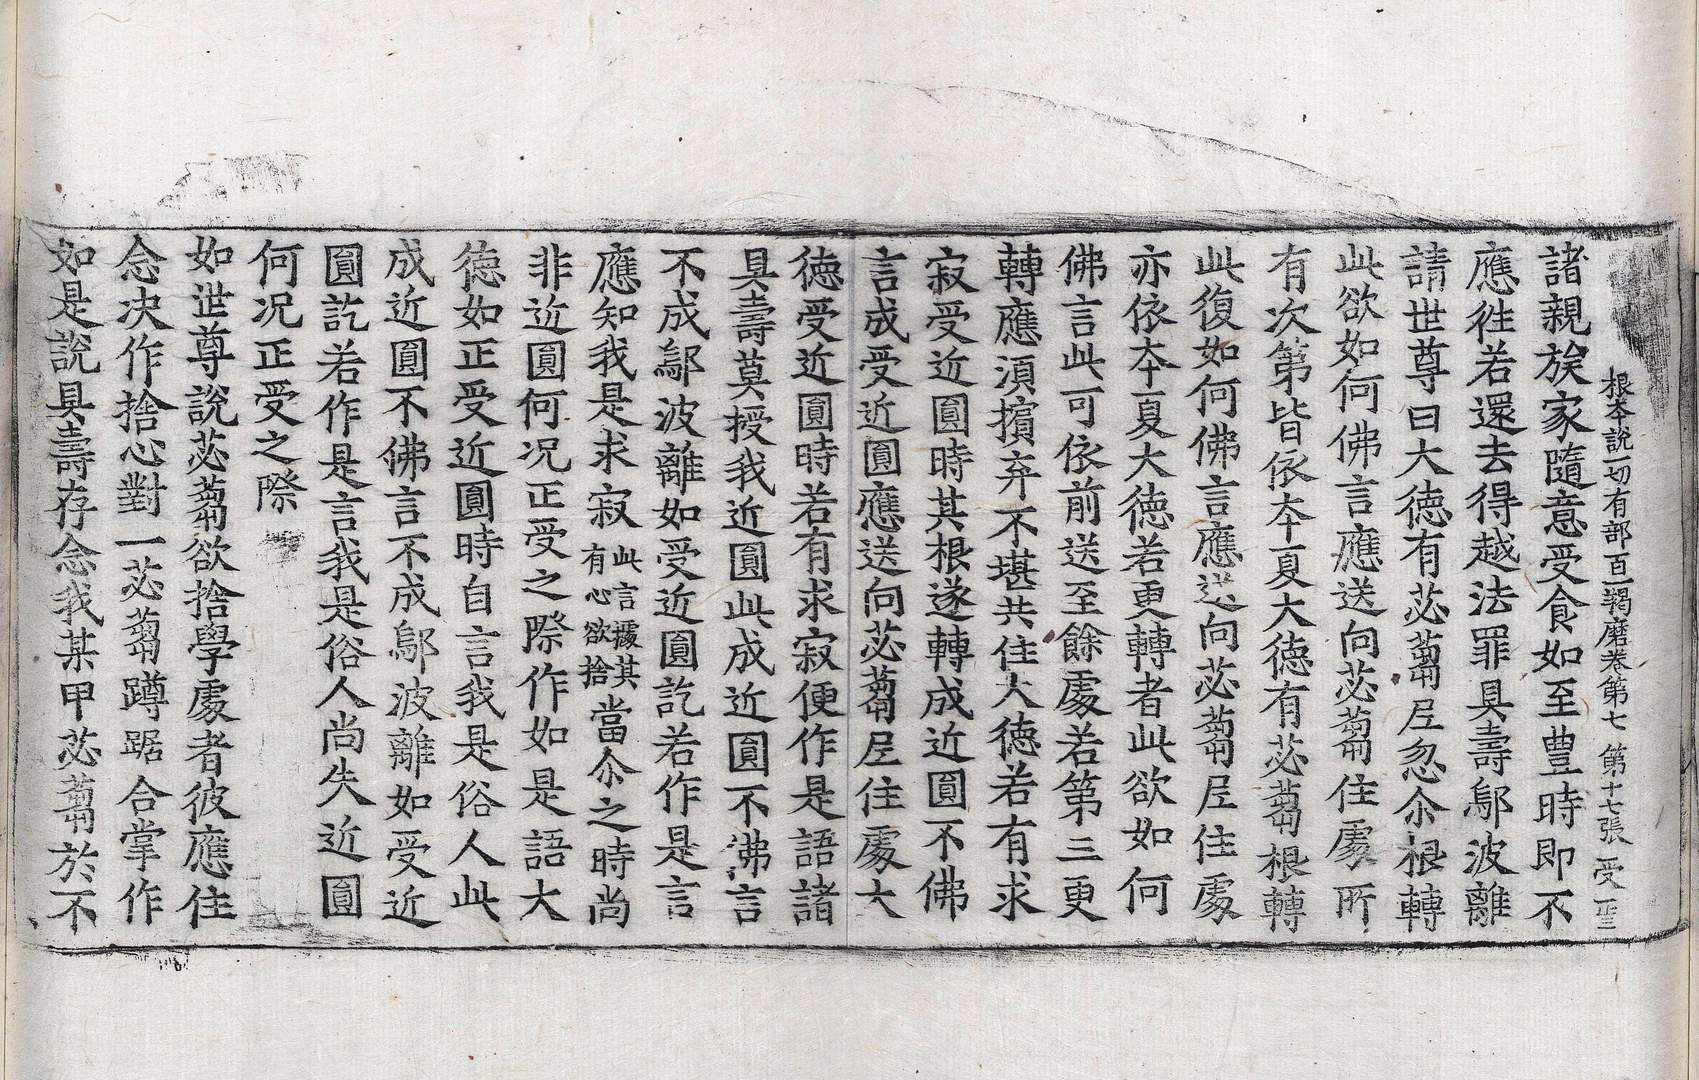 根本說一切有部百一羯磨卷第七　第十七張　受
諸親族家隨意受食如至豊時即不
應往若還去得越法罪具壽鄔波離
請世尊曰大德有苾蒭尼忽尒根轉
此欲如何佛言應送向苾蒭住處所
有次第皆依本夏大德有苾蒭根轉
此復如何佛言應送向苾蒭尼住處
亦依本夏大德若更轉者此欲如何
佛言此可依前送至餘處若第三更
轉應須擯弃不堪共住大德若有求
寂受近圓時其根遂轉成近圓不佛
言成受近圓應送向苾蒭尼住處大
德受近圓時若有求寂便作是語諸
具壽莫授我近圓此成近圓不佛言
不成鄔波離如受近圓訖若作是言
應知我是求寂此言據其有心欲捨當尒之時尚
非近圓何况正受之際作如是語大
德如正受近圓時自言我是俗人此
成近圓不佛言不成鄔波離如受近
圓訖若作是言我是俗人尚失近圓
何况正受之際
如世尊說苾蒭欲捨學處者彼應住
念决作捨心對一苾蒭蹲踞合掌作
如是說具壽存念我某甲苾蒭於不